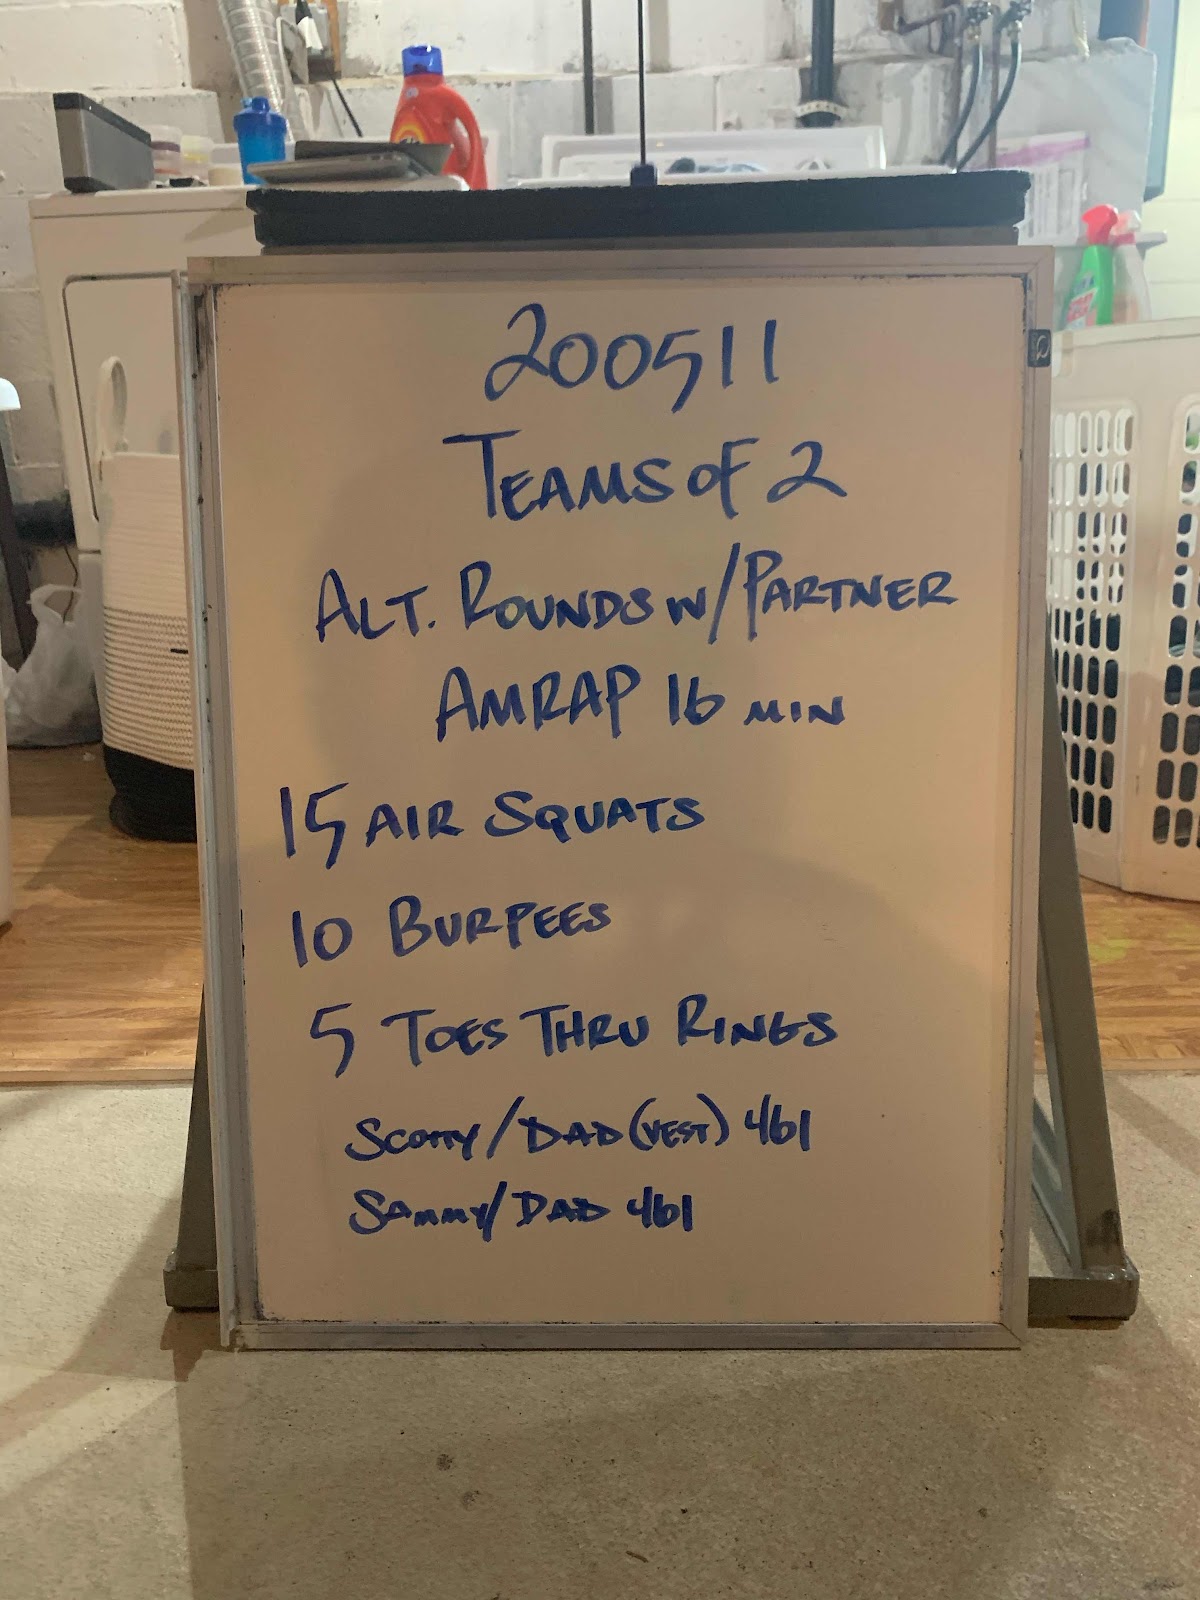 200511
TEAMS OF 2
ALT. ROUNDS W/PARTNER
AMRAP 16 MIN
15 AIR SQUATS
10 BURPEES
5 TOES THRU RINGS
SCOTTY/DAD (VEST) 461
SAMMY/DAD 461